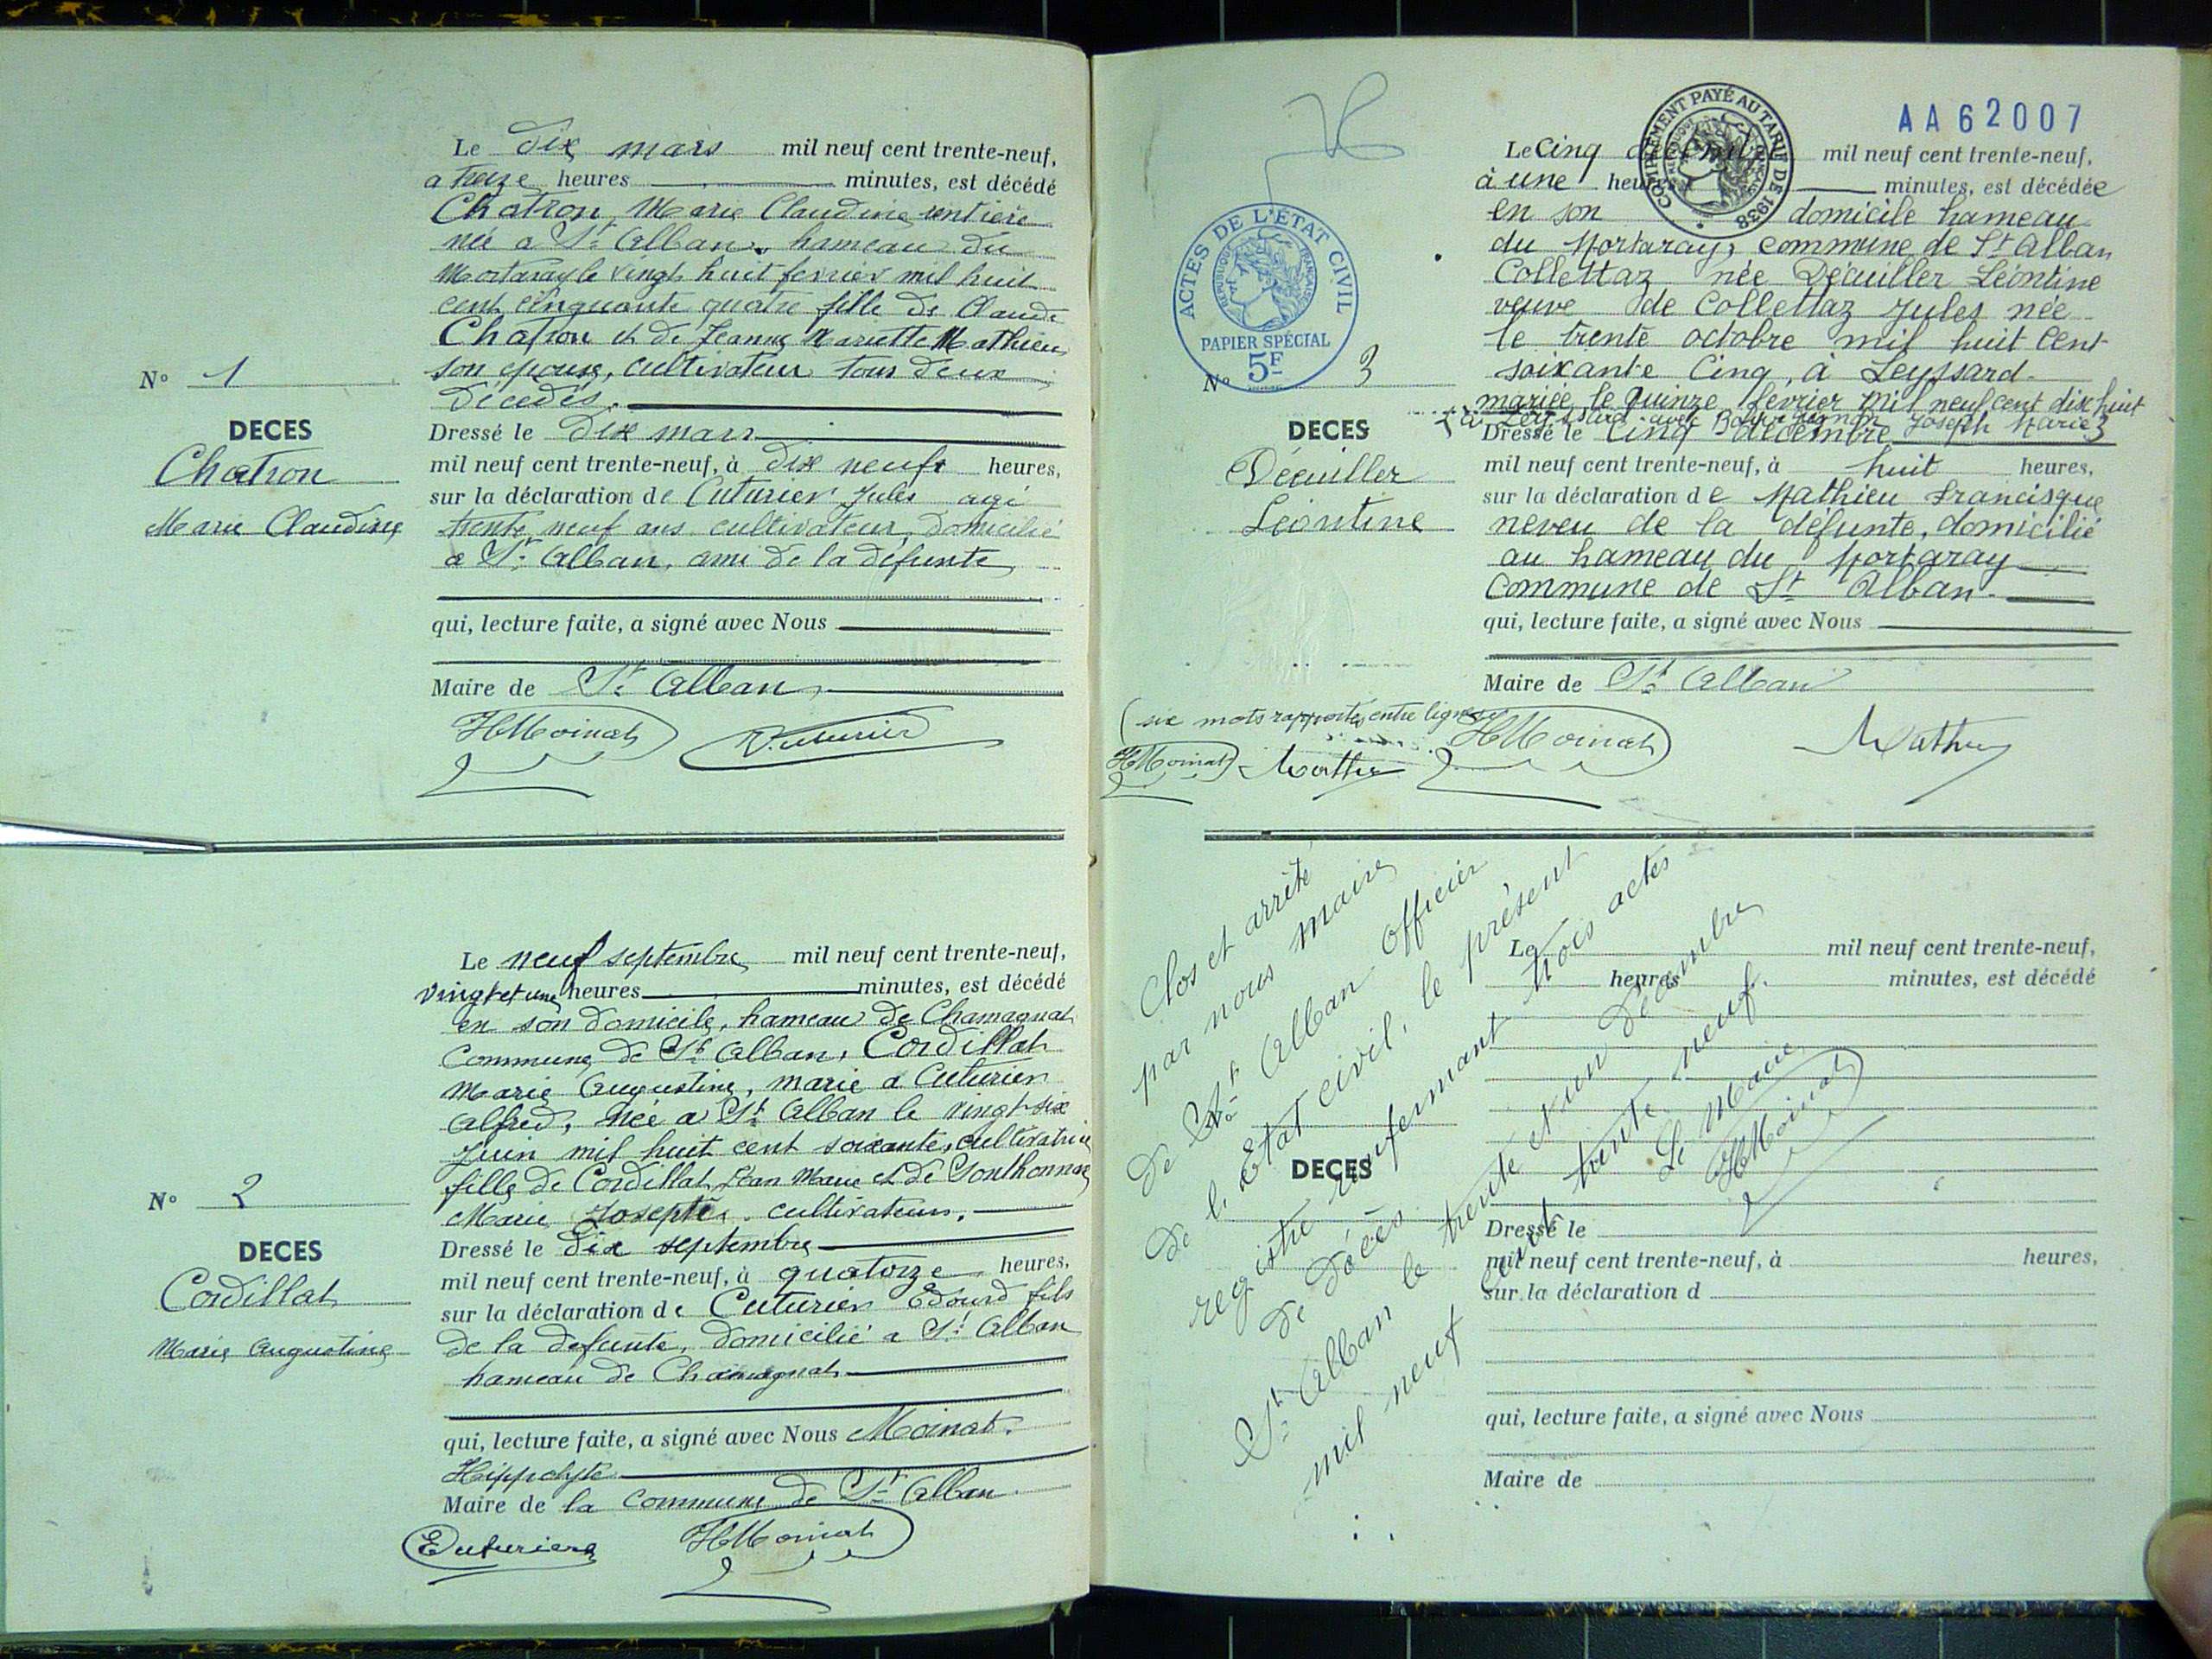 Le dix mars mil neuf cent trente-neuf,
a treize heures minutes, est décédé
Chatron, Marie Claudine rentière
née a St Alban, hameau du
Mortaray le vingt huit fevrier mil huit
cent cinquante quatre fille de Claude
Chatron et de Jeanne Mariette Mathieu
son epouse, cultivateur tous deux
Décédés.
Dressé le dix mars
mil neuf cent trente-neuf, à dix neuf heures,
sur la déclaration de Cuturier Jules agé
trente neuf ans cultivateur, domicilié
a St Alban, ami de la defunte
qui, lecture faite, a signé avec Nous
Maire de St Alban
HMoinat
N° 1
DECES
Chatron
Marie Claudine
Le neuf septembre mil neuf cent trente-neuf,
vingt et une heures minutes, est décédé
en son domicile, hameau de Chamagnat
Commune de St Alban, Cordillat
Marie Augustine, marié a Cuturier
Alfred, née a St Alban le vingt-six
Juin mil huit cent soixante, cultivatrice
fille de Cordillat Jean Marie et de Gonthonnax
Marie Josepte cultivateurs.
Dressé le dix septembre
mil neuf cent trente-neuf, à quatorze heures,
sur la déclaration de Cuturier Edourd fils
de la defunte, domicilié a St Alban
hameau de Chamagnat
qui, lecture faite, a signé avec Nous Moinat.
Hippolyte
Maire de la Commune de St Alban
ECuturier HMoinat
N° 2
DECES
Cordillat
Marie Augustine
AA62007
COMPLÉMENT PAYÉ AU TARIF DE 1938
RÉPUBLIQUE FRANÇAISE
ACTES DE L'ÉTAT CIVIL
RÉPUBLIQUE FRANÇAISE
PAPIER SPÉCIAL
5F
Le Cinq mil neuf cent trente-neuf,
à une heures minutes, est décédée
en son domicile hameau
du Mortaray, commune de St Alban
Collettaz née Décuiller Léontine
veuve de Collettaz Jules née
le trente octobre mil huit cent
soixante Cinq, à Leyssard
mariée le quinze fevrier mil neuf cent dix huit
à Leyssard avec Joseph Marie
Dressé le Cinq décembre
mil neuf cent trente-neuf, à huit heures,
sur la déclaration de Mathieu Francisque
neveu de la défunte, domicilié
au hameau du Mortaray
Commune de St Alban.
qui, lecture faite, a signé avec Nous
Maire de St Alban
(six mots rapportés entre lignes)
HMoinat Mathieu HMoinat Mathieu
N° 3
DECES
Décuiller
Léontine
Clos et arrêté
par nous maire
de St Alban Officier
de l'Etat civil, le présent
registre renfermant trois actes
de décès.
St Alban le trente et un décembre
mil neuf cent trente neuf.
Le Maire
HMoinat
Le mil neuf cent trente-neuf,
heures minutes, est décédé
N°
DECES
Dressé le
mil neuf cent trente-neuf, à heures,
sur la déclaration d
qui, lecture faite, a signé avec Nous
Maire de